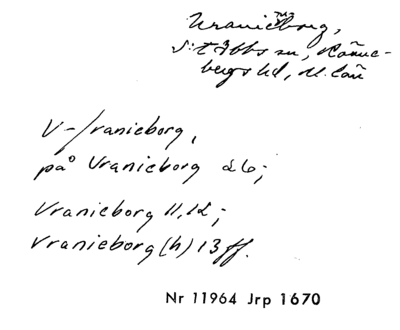 Uranieborg,
S:t Ibbs sn, Rönne-
bergs hd, M. län
V-/ranieborg,
på Vranieborg 26;
Vranieborg 11, 12;
Vranieborg (h) 13 ff.
Nr 11964 Jrp 1670